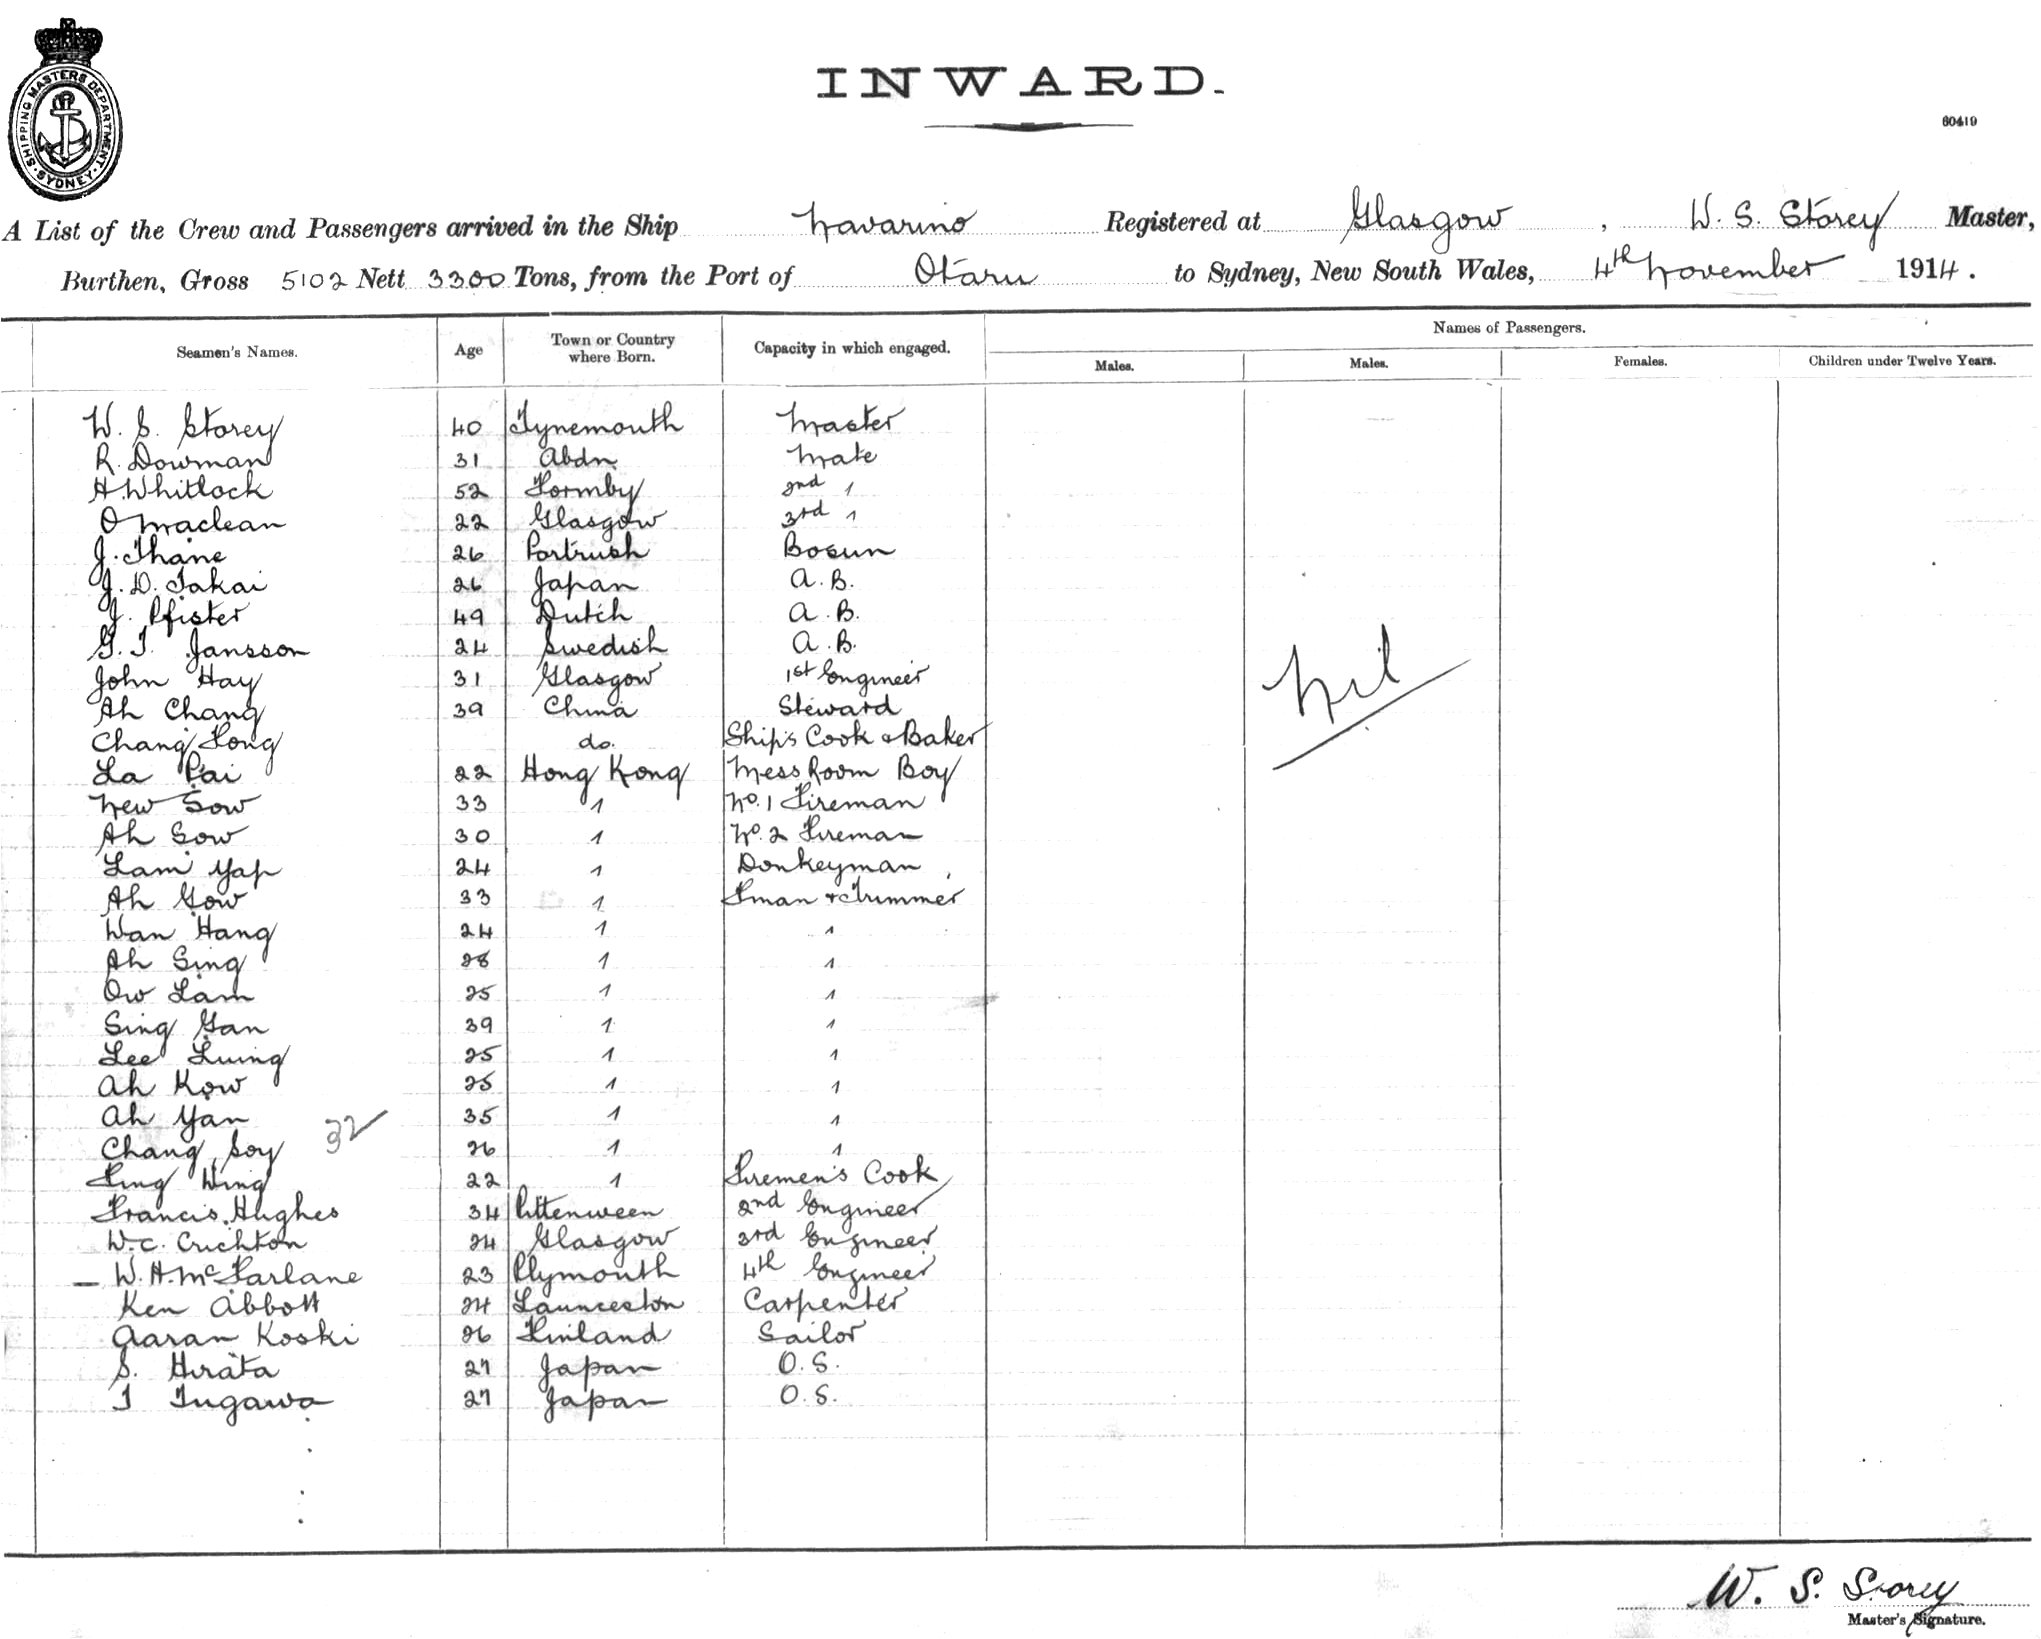 SHIPPING MASTERS DEPARTMENT. SYDNEY.
INWARD.
60419
A List of the Crew and Passengers arrived in the Ship Navarino Registered at Glasgow, W. S. Storey Master,
Burthen, Gross 5102 Nett 3300 Tons, from the Port of Otaru to Sydney, New South Wales, 4th November 1914.
Names of Passengers.
Seamen's Names. Age Town or Country where Born. Capacity in which engaged. Males. Males. Females. Children under Twelve Years.
W. S. Storey 40 Tynemouth Master
R. Dowman 31 Abdn. Mate
H. Whitlock 52 Formby 2nd "
O Maclean 22 Glasgow 3rd "
J. Thane 26 Portrush Bosun
J. D. Takai 26 Japan A.B.
J. Pfister 49 Dutch A.B.
G. T. Jansson 24 Swedish A.B.
John Hay 31 Glasgow 1st Engineer
Nil
Ah Chang 39 China Steward
Chang Fong do. Ship's Cook & Baker
La Pai 22 Hong Kong Mess Room Boy
New Sow 33 " No. 1 Fireman
Ah Sow 30 " No. 2 Fireman
Lam Yap 24 " Donkeyman
Ah Gow 33 " Fman & Trimmer
Wan Hang 24 " "
Ah Sing 28 " "
Ow Lam 25 " "
Sing Gan 39 " "
Lee Luing 25 " "
Ah Kow 25 " "
Ah Yan 35 " "
32
Chang Soy 26 " "
Fing Wing 22 " Firemen's Cook
Francis Hughes 34 Pittenween 2nd Engineer
W. C. Crichton 24 Glasgow 3rd Engineer
W. H. McFarlane 23 Plymouth 4th Engineer
Ken Abbott 24 Launceston Carpenter
Aaran Koski 26 Finland Sailor
S. Hirata 27 Japan O.S.
T Tugawa 27 Japan O.S.
W. S. Storey
Master's Signature.